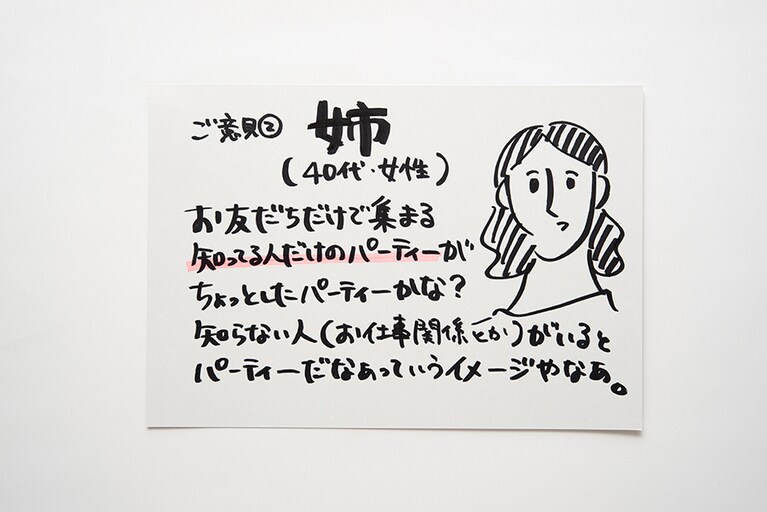 ご意見② 姉
(40代・女性)
お友だちだけで集まる
知ってる人だけのパーティーが
ちょっとしたパーティーかな?
知らない人(お仕事関係とか)がいると
パーティーだなぁっていうイメージやなぁ。